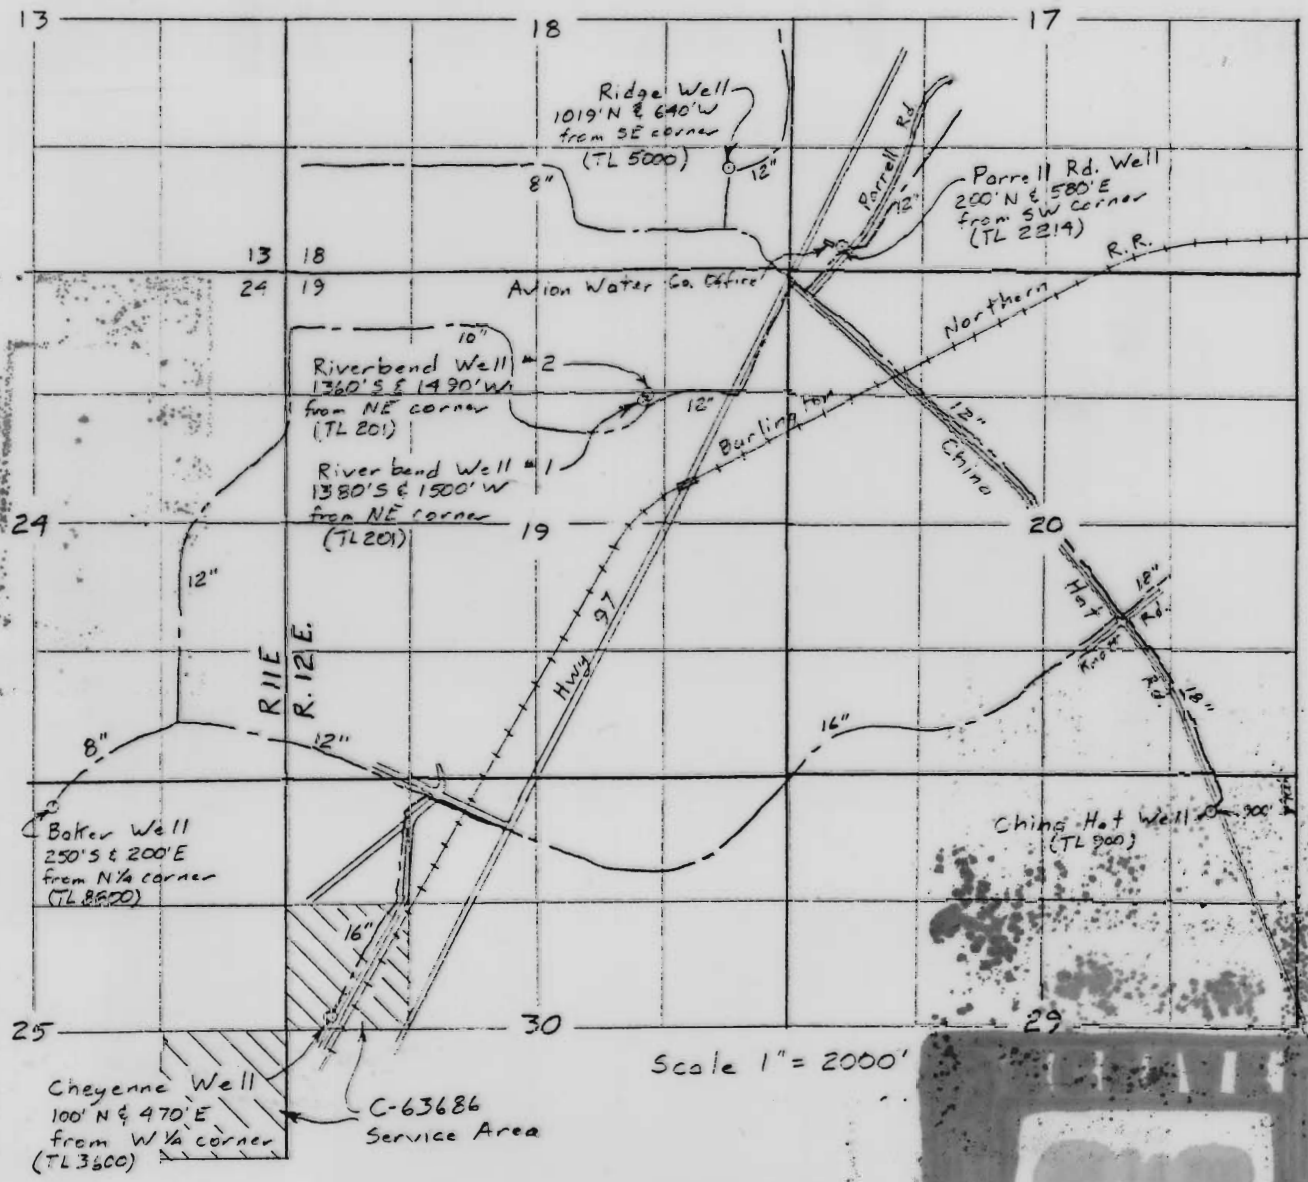 13
18
17
Ridge Well
1019'N & 640'W
from SE corner
(TL 5000)
12"
8"
Parrell Rd
12"
Parrell Rd. Well
200'N & 580'E
from SW corner
(TL 2214)
R.R.
13 | 18
24 | 19
Avion Water Co. Office
Northern
10"
Riverbend Well #2
1360'S & 1490'W
from NE corner
(TL 201)
12"
Burlington
12"
China
Riverbend Well #1
1380'S & 1500'W
from NE corner
(TL 201)
24
19
20
12"
Hwy 97
Hat
Rd.
18"
Knott
Rd.
R 11E
R. 12E.
18"
16"
8"
12"
Baker Well
250'S & 200'E
from N¼ corner
China Hat Well
900'
(TL 900)
16"
25
30
29
Scale 1" = 2000'
Cheyenne Well
100' N & 470'E
from W¼ corner
(TL3600)
C-63686
Service Area